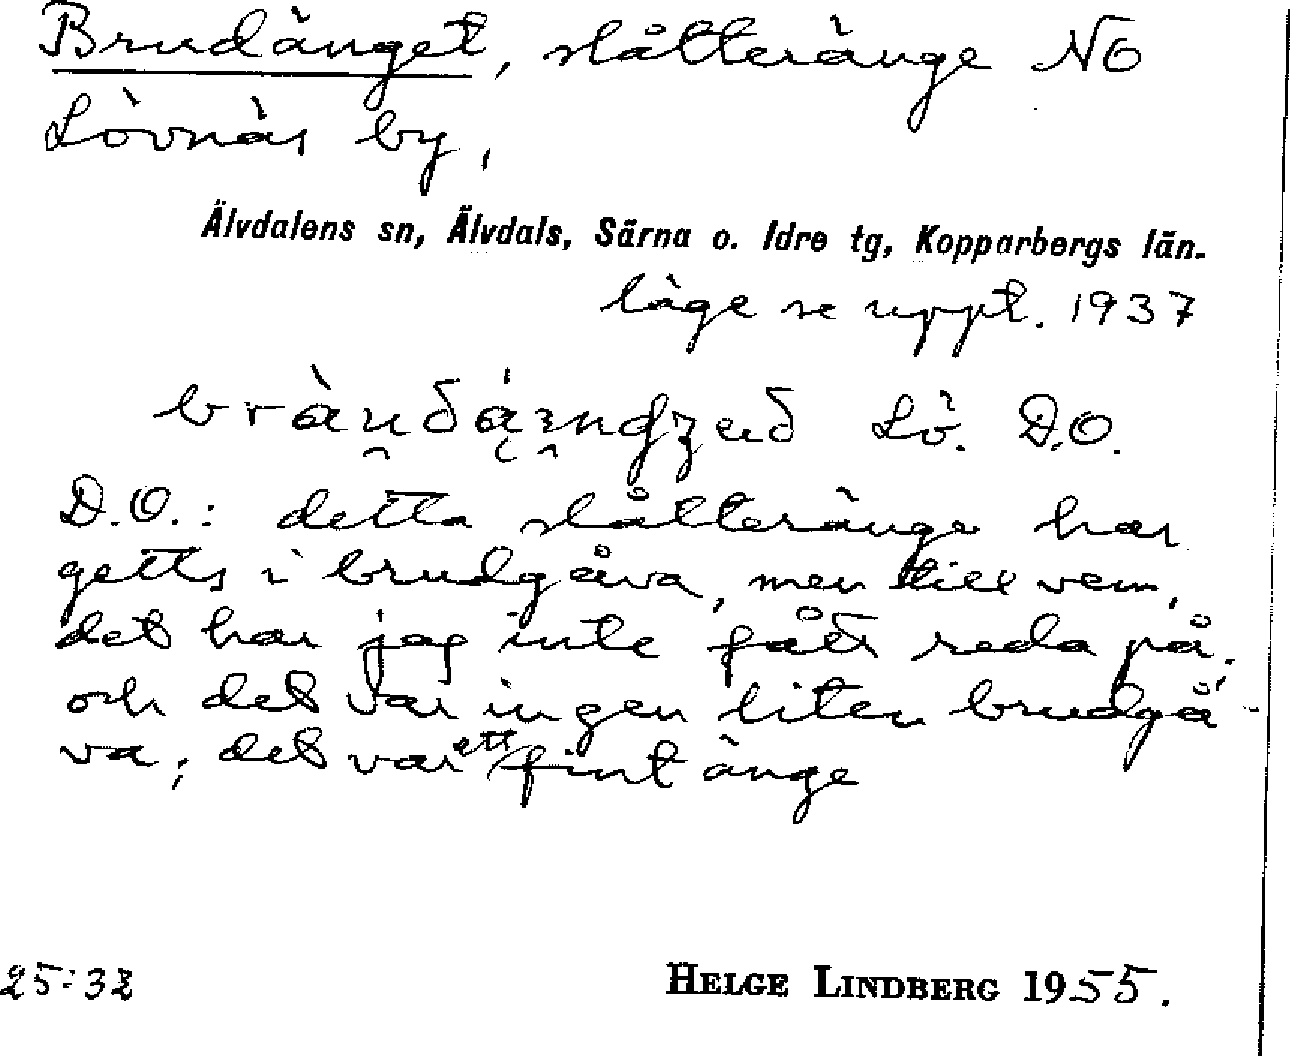 Brudänget, slåtteränge NO
Lövnäs by,
Älvdalens sn, Älvdals, Särna o. Idre tg, Kopparbergs län.
läge se uppt. 1937
Lö. D.O.
D.O.: detta slåtteränge har
getts i brudgåva, men till vem,
det har jag inte fått reda på,
och det var ingen liten brudgå-
va, det var ett fint änge
25:32
HELGE LINDBERG 1955.